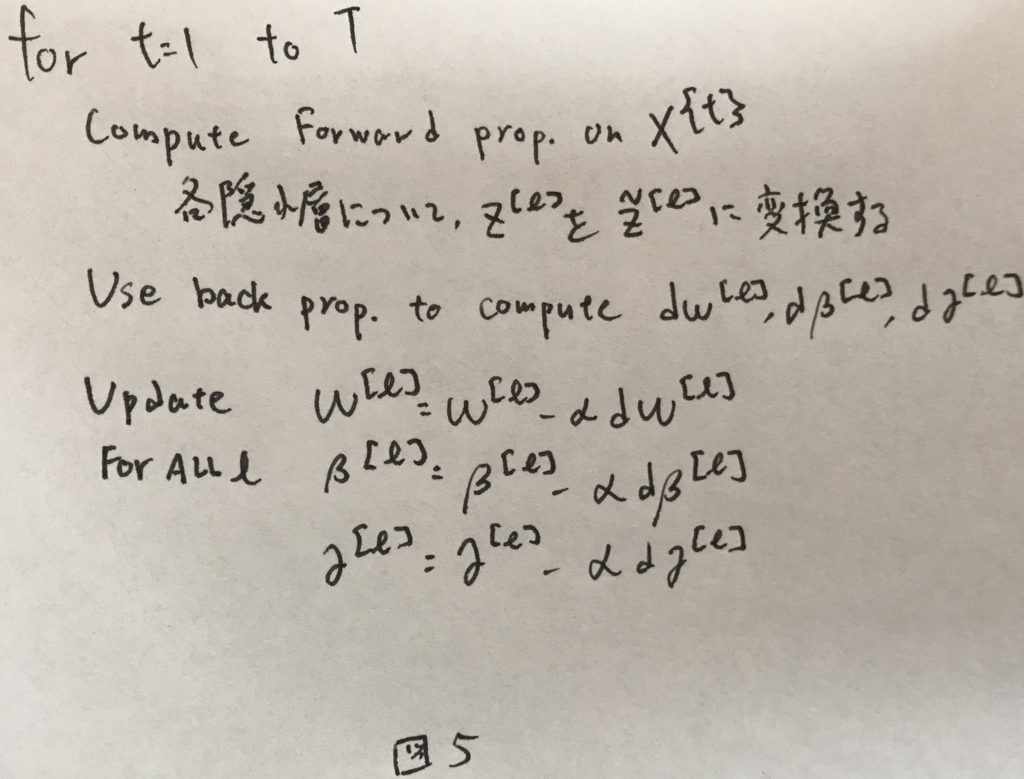 for t=1 to T
Compute Forward prop. on X^{t}
各隠れ層について, Z^[l]を Z̃^[l]に変換する
Use back prop. to compute dw^[l], dβ^[l], dγ^[l]
Update W^[l] = W^[l] - α dw^[l]
For ALL l β^[l] = β^[l] - α dβ^[l]
γ^[l] = γ^[l] - α dγ^[l]
図5